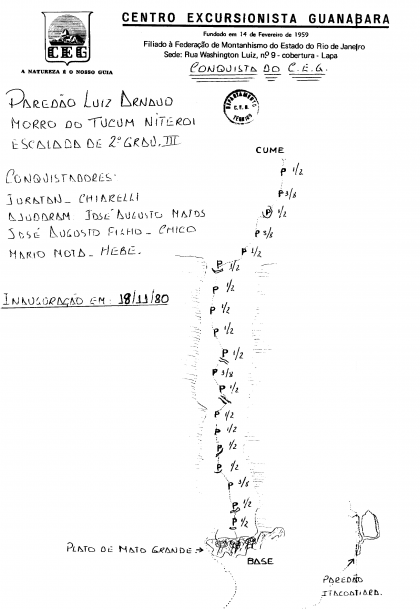 CENTRO EXCURSIONISTA GUANABARA
Fundado em 14 de Fevereiro de 1959
Filiado à Federação de Montanhismo do Estado do Rio de Janeiro
Sede: Rua Washington Luiz, nº 9 - cobertura - Lapa
CEG
A NATUREZA É O NOSSO GUIA
CONQUISTA DO C.E.G.
PAREDÃO LUIZ ARNAUD
MORRO DO TUCUM NITEROI
ESCALADA DE 2º GRAU. III
DEPARTAMENTO
C.E.G.
TÉCNICO
CONQUISTADORES-
JURATAN - CHIARELLI
AJUDARAM JOSÉ AUGUSTO MATOS
JOSÉ AUGUSTO FILHO - CHICO
MARIO MOTA - HEBE.
INAUGURAÇÃO EM: 18/11/80
CUME
P 1/2
P 3/8
P 1/2
P 5/8
P 1/2
P 1/2
P 1/2
P 1/2
P 1/2
P 1/2
P 3/8
P 1/2
P 1/2
P 1/2
P 1/2
P 1/2
P 3/8
P 1/2
P 1/2
PLATO DE MATO GRANDE
BASE
PAREDÃO
ITACOATIARA.